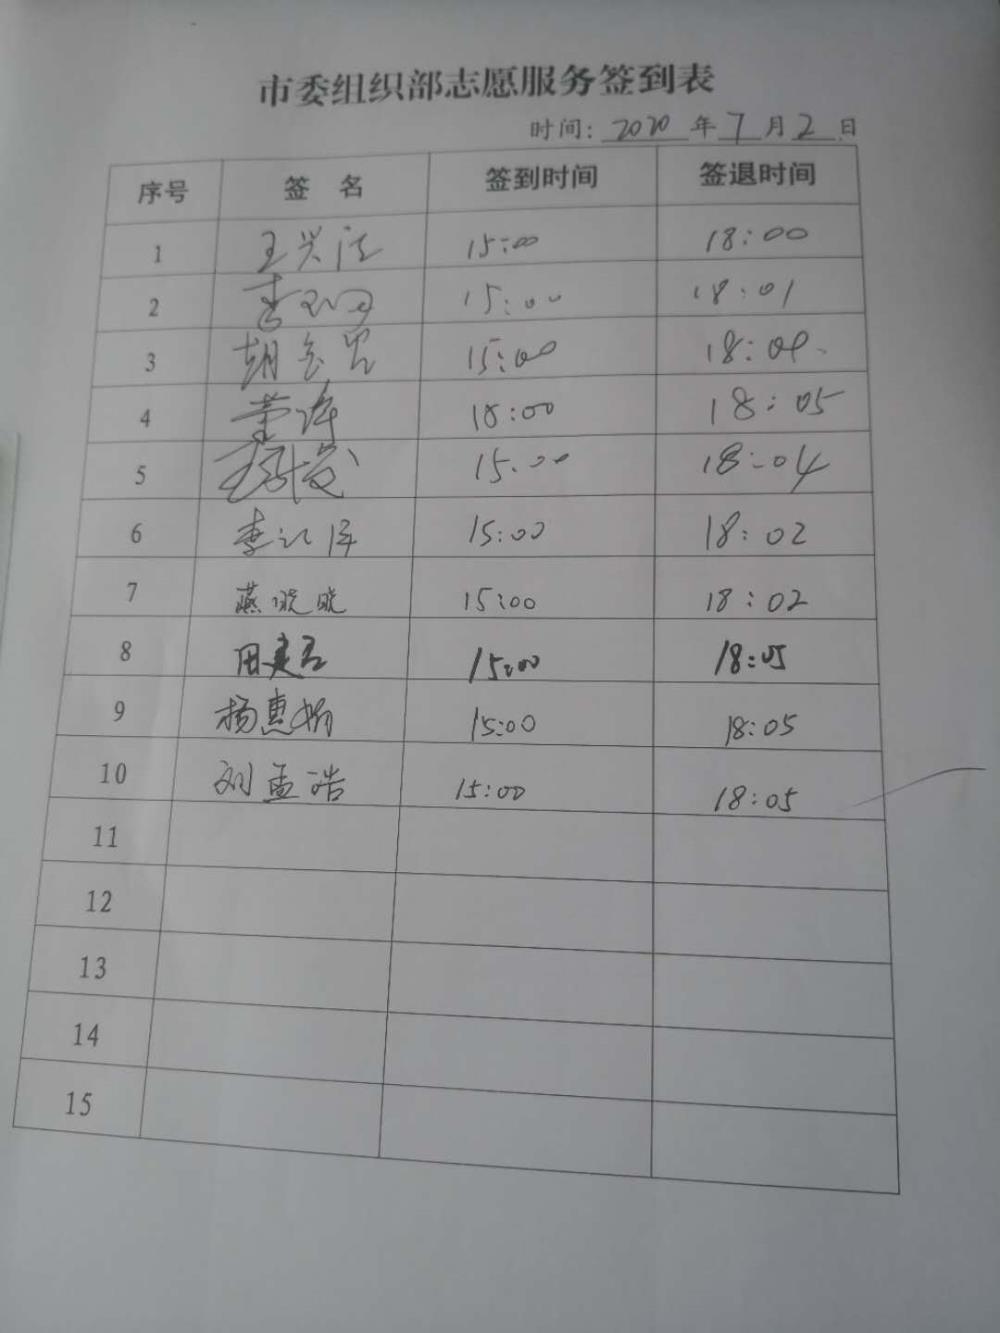 市委组织部志愿服务签到表
时间: 2020 年 7 月 2 日
序号 签 名 签到时间 签退时间
1 王兴 15:00 18:00
2 李 15:00 18:01
3 胡 15:00 18:00
4 董 18:00 18:05
5 15:00 18:04
6 李 15:00 18:02
7 燕晓晓 15:00 18:02
8 田 15:00 18:05
9 杨惠娟 15:00 18:05
10 刘孟浩 15:00 18:05
11
12
13
14
15